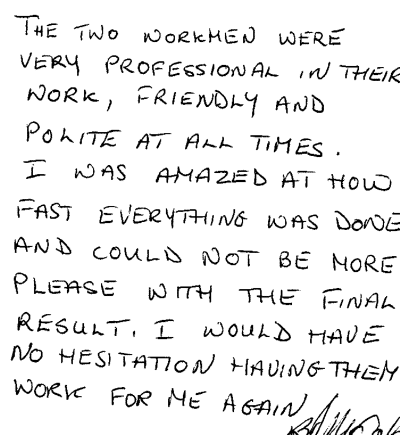 THE TWO WORKMEN WERE
VERY PROFESSIONAL IN THEIR
WORK, FRIENDLY AND
POLITE AT ALL TIMES.
I WAS AMAZED AT HOW
FAST EVERYTHING WAS DONE
AND COULD NOT BE MORE
PLEASE WITH THE FINAL
RESULT. I WOULD HAVE
NO HESITATION HAVING THEM
WORK FOR ME AGAIN